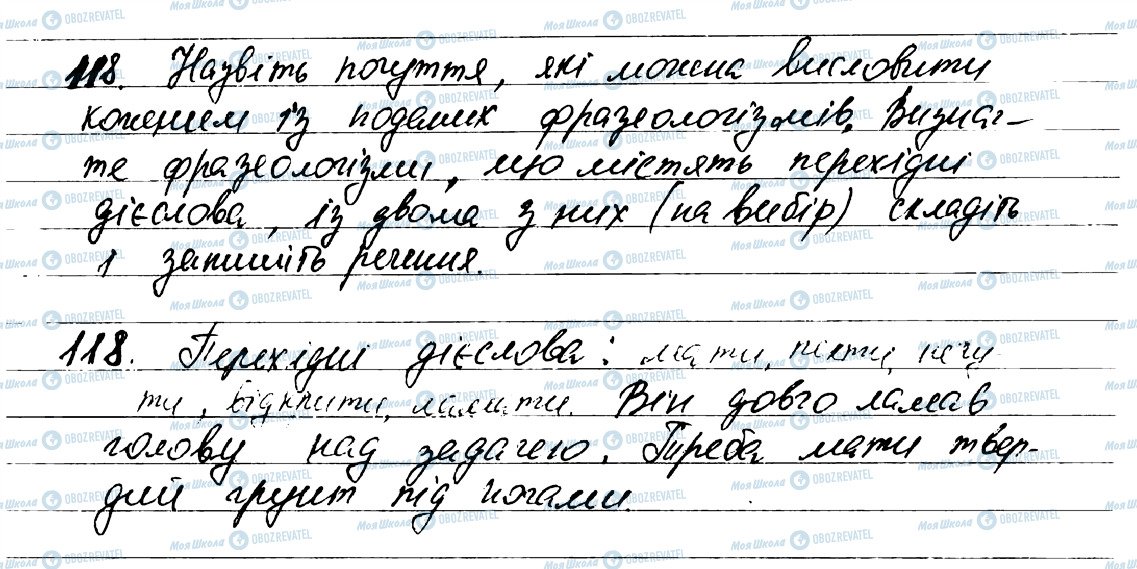 118. Назвіть почуття, які можна висловити
кожним із поданих фразеологізмів. Визнач-
те фразеологізми, що містять перехідні
дієслова, із двома з них (на вибір) складіть
і запишіть речення.
118. Перехідні дієслова: мати, пекти, почу
ти, відкрити, ламати. Він довго ламав
голову над задачею. Треба мати твер-
дий грунт під ногами.